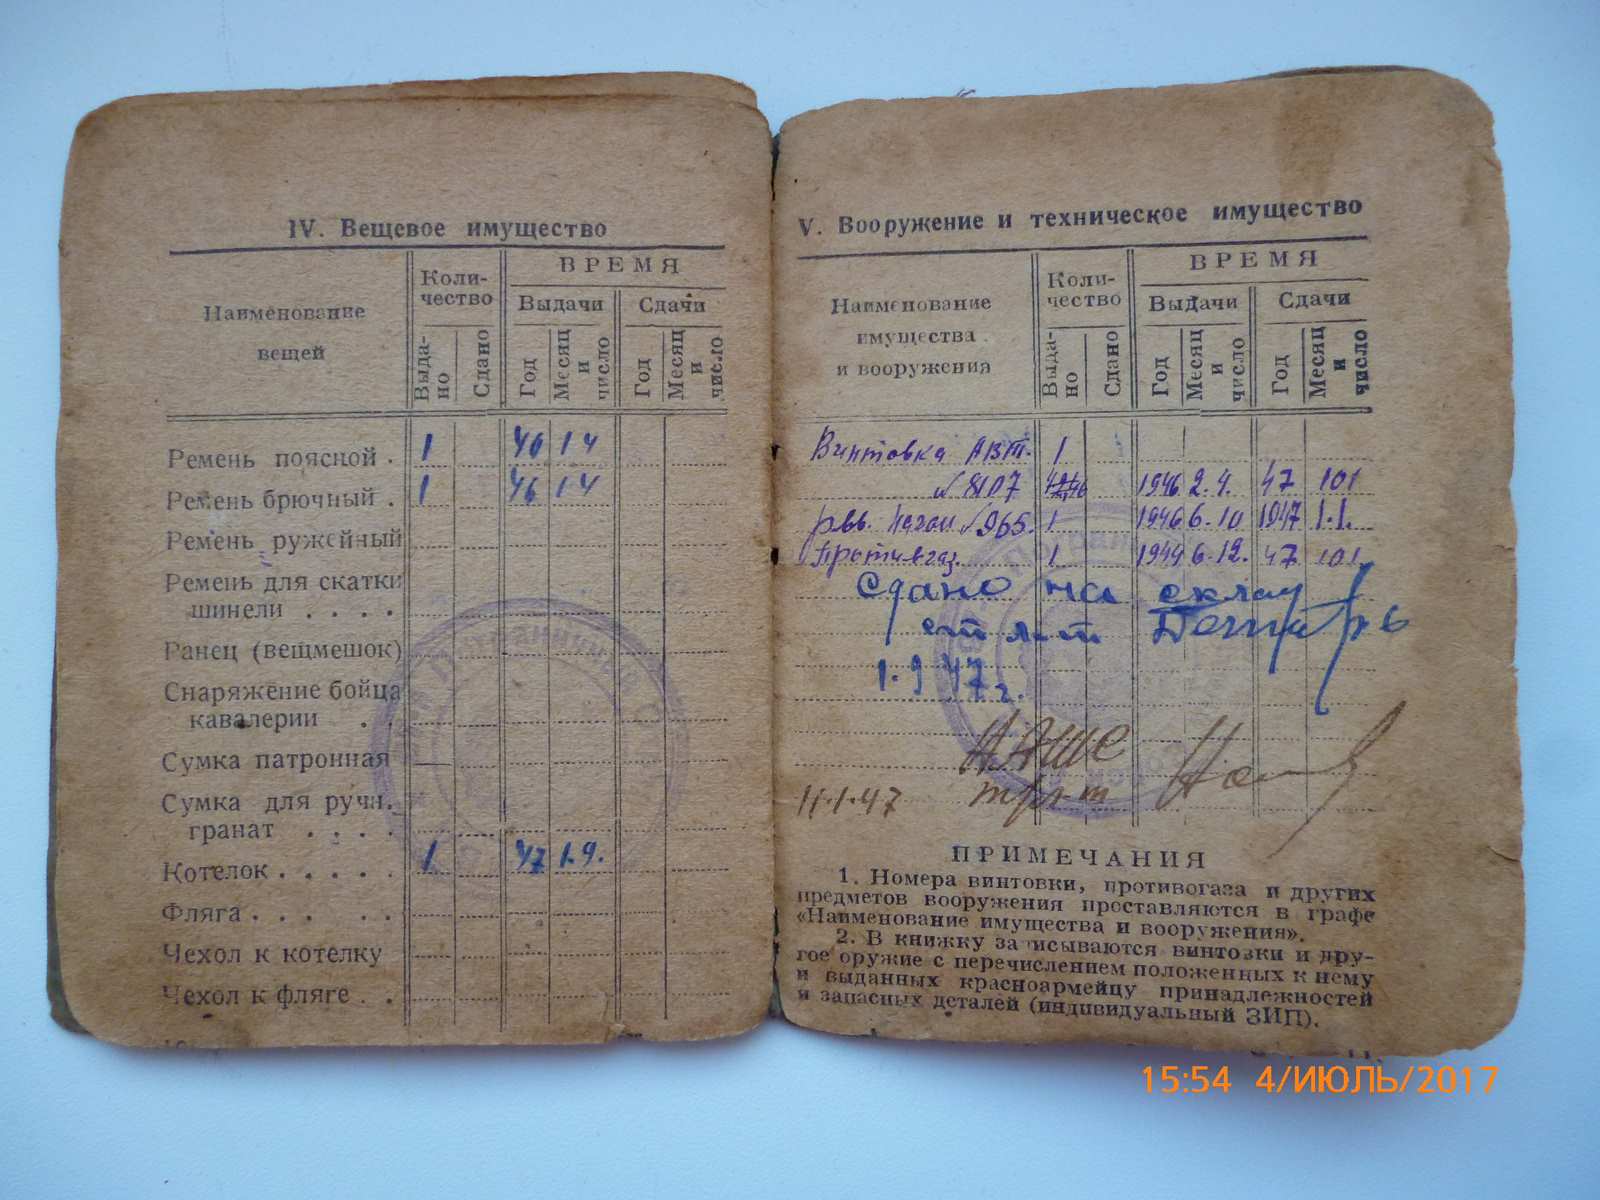 IV. Вещевое имущество
Наименование вещей
Количество
ВРЕМЯ
Выдачи
Сдачи
Выдано
Сдано
Год
Месяц и число
Год
Месяц и число
Ремень поясной . 1 46 1 4
Ремень брючный . 1 46 1 4
Ремень ружейный
Ремень для скатки
шинели . . . .
Ранец (вещмешок)
Снаряжение бойца
кавалерии . .
Сумка патронная
Сумка для ручн.
гранат . . . .
Котелок . . . . . 1 47 1.9.
Фляга . . . . .
Чехол к котелку
Чехол к фляге . .
V. Вооружение и техническое имущество
Наименование
имущества
и вооружения
Количество
ВРЕМЯ
Выдачи
Сдачи
Выдано
Сдано
Год
Месяц и число
Год
Месяц и число
Винтовка АВТ. 1
№ 8107 1946 2.4. 47 101
рев. Наган №965. 1 1946 6.10 1947 1.1.
Противгаз. 1 1944 6.12. 47 101
Сдано на склад
1.9 47 г.
11.1.47
ПРИМЕЧАНИЯ
1. Номера винтовки, противогаза и других
предметов вооружения проставляются в графе
«Наименование имущества и вооружения».
2. В книжку записываются винтовки и дру-
гое оружие с перечислением положенных к нему
и выданных красноармейцу принадлежностей
и запасных деталей (индивидуальный ЗИП).
15:54 4/ИЮЛЬ/2017